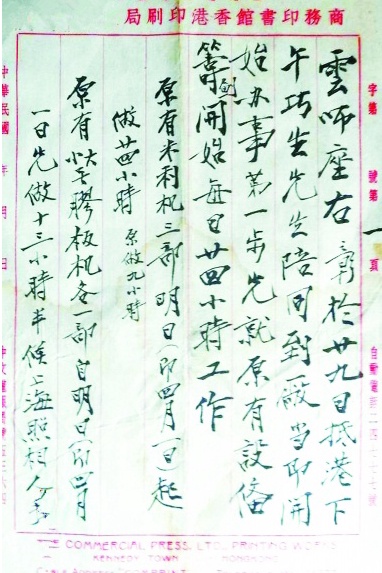 商務印書館香港印刷局
字第 號第一頁
雲師座右 弟於廿九日抵港下
午巧生先生陪同到廠當即開
始办事第一步先就原有設備
籌劃開始每日廿四小時工作
原有米利机三部明日(即四月一日)起
做廿四小時 原做九小時
原有大小膠板机各一部自明日(即四月
一日先做十三小時半候上海照相人
中華民國 年 月 日
COMMERCIAL PRESS, LTD. PRINTING WORKS
KENNEDY TOWN HONGKONG